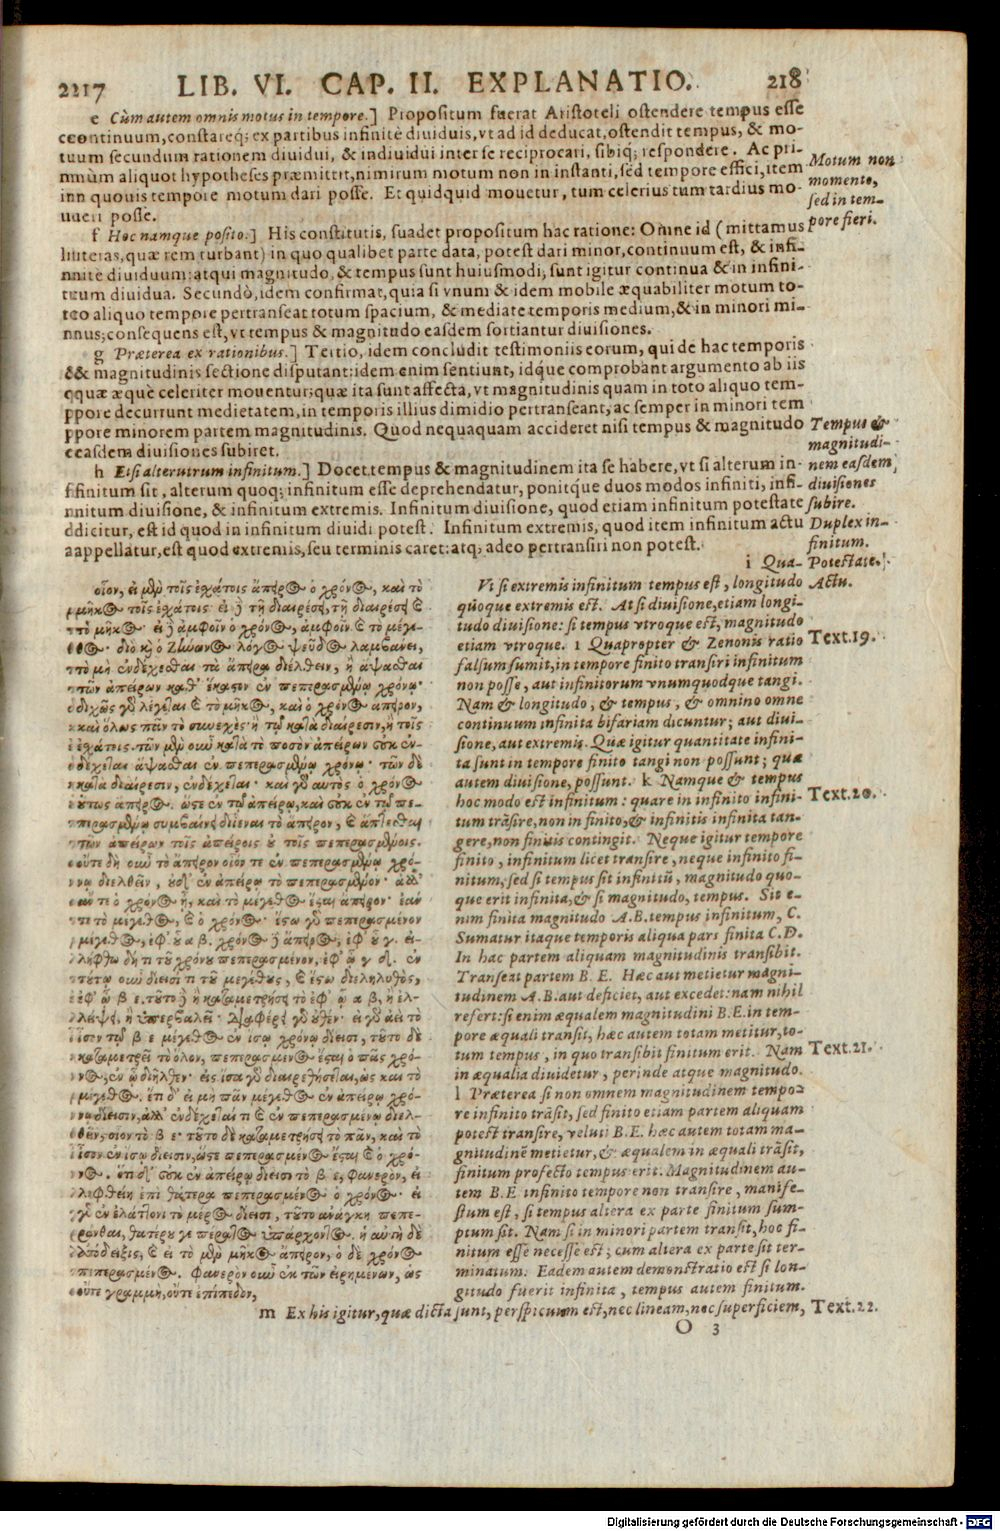 2217 LIB. VI. CAP. II. EXPLANATIO. 218
e Cùm autem omnis motus in tempore.] Propositum fuerat Aristoteli ostendere tempus esse
ccontinuum, constareq; ex partibus infinitè diuiduis, vt ad id deducat, ostendit tempus, & mo-
tuum secundum rationem diuidui, & indiuidui inter se reciprocari, sibiq; respondere. Ac pri-
mmùm aliquot hypotheses præmittit, nimirum motum non in instanti, sed tempore effici, item
inn quouis tempore motum dari posse. Et quidquid mouetur, tum celerius tum tardius mo-
uueri posse.
Motum non
momento,
sed in tem-
pore fieri.
f Hoc namque posito.] His constitutis, suadet propositum hac ratione: Omne id (mittamus
litteras, quæ rem turbant) in quo qualibet parte data, potest dari minor, continuum est, & infi-
nnitè diuiduum: atqui magnitudo, & tempus sunt huiusmodi; sunt igitur continua & in infini-
tuum diuidua. Secundò, idem confirmat, quia si vnum & idem mobile æquabiliter motum to-
tto aliquo tempore pertranseat totum spacium, & mediate temporis medium, & in minori mi-
nnus; consequens est, vt tempus & magnitudo easdem sortiantur diuisiones.
g Præterea ex rationibus.] Tertio, idem concludit testimoniis eorum, qui de hac temporis
&& magnitudinis sectione disputant: idem enim sentiunt, idq́ue comprobant argumento ab iis
qquæ æquè celeriter mouentur; quæ ita sunt affecta, vt magnitudinis quam in toto aliquo tem-
ppore decurrunt medietatem, in temporis illius dimidio pertranseant, ac semper in minori tem
ppore minorem partem magnitudinis. Quod nequaquam accideret nisi tempus & magnitudo
eeasdem diuisiones subiret.
h Etsi alterutrum infinitum.] Docet tempus & magnitudinem ita se habere, vt si alterum in-
ffinitum sit, alterum quoq; infinitum esse deprehendatur, ponitq́ue duos modos infiniti, infi-
nnitum diuisione, & infinitum extremis. Infinitum diuisione, quod etiam infinitum potestate
ddicitur, est id quod in infinitum diuidi potest. Infinitum extremis, quod item infinitum actu
aappellatur, est quod extremis, seu terminis caret: atq; adeo pertransiri non potest.
Tempus &
magnitudi-
nem easdem
diuisiones
subire.
Duplex in-
finitum.
i Qua-
Potestate.
Actu.
οἷον, εἰ μὲν τοῖς ἐχάτοις ἄπειρος ὁ χρόνος, καὶ τὸ
μμῆκος τοῖς ἐχάτοις· εἰ δὲ τῇ διαιρέσει, τῇ διαιρέσει καὶ
ττὸ μῆκος· εἰ δὲ ἀμφοῖν ὁ χρόνος, ἀμφοῖν καὶ τὸ μέγε-
θθος· διὸ καὶ ὁ Ζήνωνος λόγος ψεῦδος λαμβάνει,
ττὸ μὴ ἐνδέχεσθαι τὰ ἄπειρα διελθεῖν, ἢ ἅψασθαι
ττῶν ἀπείρων καθ' ἕκαστον ἐν πεπερασμένῳ χρόνῳ·
δδιχῶς γὰρ λέγεται καὶ τὸ μῆκος, καὶ ὁ χρόνος ἄπειρον,
κκαὶ ὅλως πᾶν τὸ συνεχὲς· ἢ τῷ κατὰ διαίρεσιν, ἢ τοῖς
ἐἐχάτοις. τῶν μὲν οὖν κατὰ τὸ ποσὸν ἀπείρων οὐκ ἐν-
δδέχεται ἅψασθαι ἐν πεπερασμένῳ χρόνῳ· τῶν δὲ
κκατὰ διαίρεσιν, ἐνδέχεται· καὶ γὰρ αὐτὸς ὁ χρόνος
οὕτως ἄπειρος. ὥστε ἐν τῷ ἀπείρῳ, καὶ οὐκ ἐν τῷ πε-
ππερασμένῳ συμβαίνει διϊέναι τὸ ἄπειρον, καὶ ἅπτεσθαι
ττῶν ἀπείρων τοῖς ἀπείροις οὐ τοῖς πεπερασμένοις.
οὔτε δὴ οὖν τὸ ἄπειρον οἷόν τε ἐν πεπερασμένῳ χρό-
ννῳ διελθεῖν, οὐδ' ἐν ἀπείρῳ τὸ πεπερασμένον· ἀλλ'
ἐὰν τι ὁ χρόνος ᾖ, καὶ τὸ μέγεθος ἔσται ἄπειρον· ἐὰν
ττι τὸ μέγεθος, καὶ ὁ χρόνος· ἔστω γὰρ πεπερασμένον
μμέγεθος, ἐφ' οὗ α β. χρόνος δὲ ἄπειρος, ἐφ' οὗ γ. εἰ-
λλήφθω δή τι τοῦ χρόνου πεπερασμένον, ἐφ' ᾧ γ δ. ἐν
ττούτῳ οὖν δίεισί τι τοῦ μεγέθους, καὶ ἔστω διεληλυθὸς,
ἐἐφ' ᾧ β ε. τοῦτο δὲ ἢ καταμετρήσει τὸ ἐφ' ᾧ α β, ἢ ἐλ-
λλείψει, ἢ ὑπερβαλεῖ· διαφέρει γὰρ οὐθέν· εἰ γὰρ ἀεὶ τὸ
ἴἴσον τῷ β ε μέγεθος ἐν ἴσῳ χρόνῳ δίεισι, τοῦτο δὲ
κκαταμετρεῖ τὸ ὅλον, πεπερασμένος ἔσται ὁ πᾶς χρό-
ννος, ἐν ᾧ διῆλθεν· εἰς ἴσα γὰρ διαιρεθήσεται, ὡς καὶ τὸ
μμέγεθος. ἔτι δ' εἰ μὴ πᾶν μέγεθος ἐν ἀπείρῳ χρό-
ννῳ δίεισιν, ἀλλ' ἐνδέχεταί τι καὶ ἐν πεπερασμένῳ διελ-
θθεῖν, οἷον τὸ β ε· τοῦτο δὲ καταμετρήσει τὸ πᾶν, καὶ τὸ
ἴἴσον ἐν ἴσῳ δίεισιν, ὥστε πεπερασμένος ἔσται καὶ ὁ χρό-
ννος. ὅτι δ' οὐκ ἐν ἀπείρῳ δίεισι τὸ β ε, φανερὸν, εἰ
λληφθείη ἐπὶ θάτερα πεπερασμένος ὁ χρόνος· εἰ
γὰρ ἐν ἐλάττονι τὸ μέρος δίεισι, τοῦτο ἀνάγκη πεπε-
ρράνθαι, θατέρου γε πέρατος ὑπάρχοντος. ἡ αὐτὴ δὲ
ἀπόδειξις, καὶ εἰ τὸ μὲν μῆκος ἄπειρον, ὁ δὲ χρόνος
ππεπερασμένος. Φανερὸν οὖν ἐκ τῶν εἰρημένων, ὡς
οὔτε γραμμὴ, οὔτε ἐπίπεδον,
Vt si extremis infinitum tempus est, longitudo
quoque extremis est. At si diuisione, etiam longi-
tudo diuisione: si tempus vtroque est, magnitudo
etiam vtroque. i Quapropter & Zenonis ratio
falsum sumit, in tempore finito transiri infinitum
non posse, aut infinitorum vnumquodque tangi.
Nam & longitudo, & tempus, & omnino omne
continuum infinita bifariam dicuntur; aut diui-
sione, aut extremis. Quæ igitur quantitate infini-
ta sunt in tempore finito tangi non possunt; quæ
autem diuisione, possunt. k Namque & tempus
hoc modo est infinitum: quare in infinito infini-
tum trãsire, non in finito, & infinitis infinita tan-
gere, non finitis contingit. Neque igitur tempore
finito, infinitum licet transire, neque infinito fi-
nitum, sed si tempus sit infinitũ, magnitudo quo-
que erit infinita, & si magnitudo, tempus. Sit e-
nim finita magnitudo A.B. tempus infinitum, C.
Sumatur itaque temporis aliqua pars finita C.D.
In hac partem aliquam magnitudinis transibit.
Transeat partem B. E. Hæc aut metietur magni-
tudinem A.B. aut deficiet, aut excedet: nam nihil
refert: si enim æqualem magnitudini B.E. in tem-
pore æquali transit, hæc autem totam metitur, to-
tum tempus, in quo transibit finitum erit. Nam
in æqualia diuidetur, perinde atque magnitudo.
l Præterea si non omnem magnitudinem tempo-
re infinito trãsit, sed finito etiam partem aliquam
potest transire, veluti B.E. hæc autem totam ma-
gnitudinẽ metietur, & æqualem in æquali trãsit,
finitum profecto tempus erit. Magnitudinem au-
tem B.E infinito tempore non transire, manife-
stum est, si tempus altera ex parte finitum sum-
ptum sit. Nam si in minori partem transit, hoc fi-
nitum esse necesse est; cum altera ex parte sit ter-
minatum. Eadem autem demonstratio est si lon-
gitudo fuerit infinita, tempus autem finitum.
Text.19.
Text.20.
Text.21.
m Ex his igitur, quæ dicta sunt, perspicuum est, nec lineam, nec superficiem, Text.22.
O 3
Digitalisierung gefördert durch die Deutsche Forschungsgemeinschaft - DFG